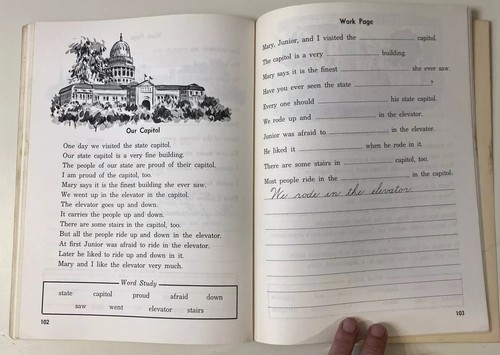 Our Capitol
One day we visited the state capitol.
Our state capitol is a very fine building.
The people of our state are proud of their capitol.
I am proud of the capitol, too.
Mary says it is the finest building she ever saw.
We went up in the elevator in the capitol.
The elevator goes up and down.
It carries the people up and down.
There are some stairs in the capitol, too.
But all the people ride up and down in the elevator.
At first Junior was afraid to ride in the elevator.
Later he liked to ride up and down in it.
Mary and I like the elevator very much.
Word Study
state capitol proud afraid down
saw went elevator stairs
102
Work Page
Mary, Junior, and I visited the ____ capitol.
The capitol is a very ____ building
Mary says it is the finest ____ she ever saw.
Have you ever seen the state ____ ?
Every one should ____ his state capitol.
We rode up and ____ in the elevator.
Junior was afraid to ____ in the elevator.
He liked it ____ when he rode in it.
There are some stairs in ____ capitol, too.
Most people ride in the ____ in the capitol.
We rode in the elevator.
103